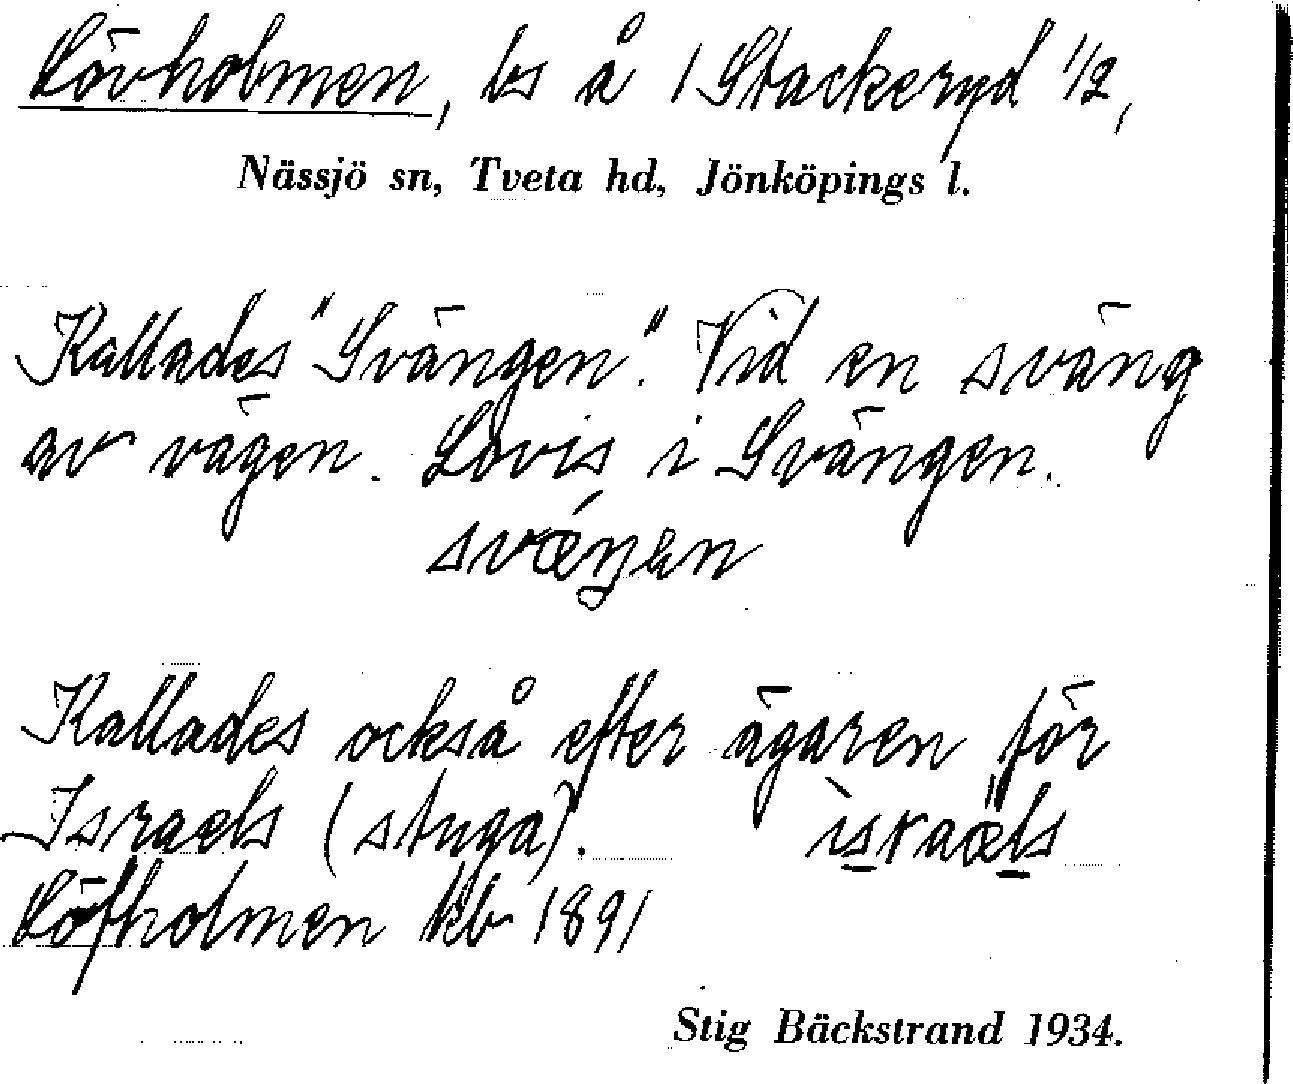 Lövholmen, ls å 1 Stackeryd 1/2,
Nässjö sn, Tveta hd, Jönköpings l.
Kallades "Svängen". Vid en sväng
av vägen. Lovis i Svängen.
svǽŋən
Kallades också efter ägaren för
Israels (stuga). ìsraæls
Löfholmen kb 1891
Stig Bäckstrand 1934.